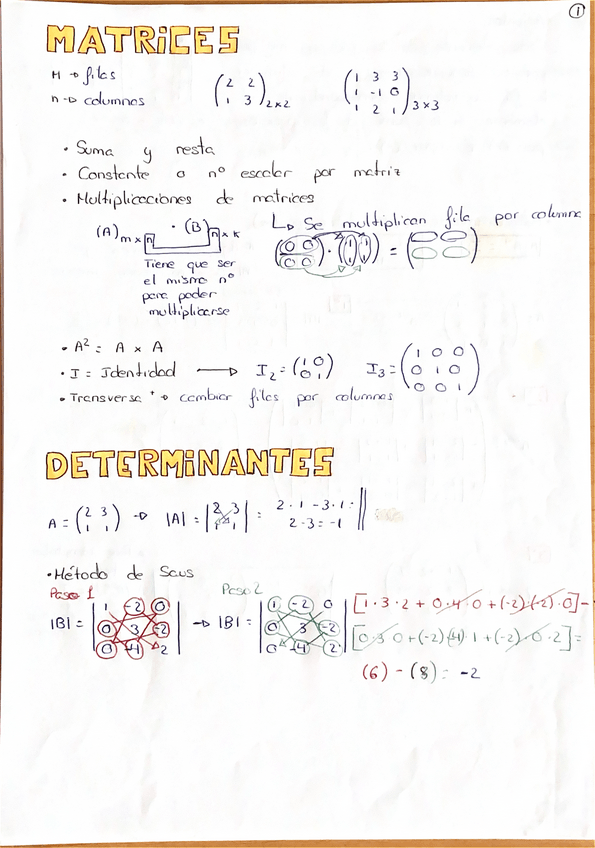 1
MATRICES
M → filas
n → columnas
(2 2
1 3)2x2
(1 3 3
1 -1 0
1 2 1)3x3
• Suma y resta
• Constante o nº escalar por matriz
• Multiplicaciones de matrices
(A)m x n · (B)n x k
Tiene que ser
el mismo nº
para poder
multiplicarse
↳ Se multiplican fila por columna
• A² = A x A
• I = Identidad → I2 = (1 0
0 1)
I3 = (1 0 0
0 1 0
0 0 1)
• Transversa t → cambiar filas por columnas
DETERMINANTES
A = (2 3
1 1) → |A| = |2 3
1 1| = 2·1 - 3·1 =
2-3 = -1
• Método de Scus
Paso 1
|B| = |1 -2 0
0 3 -2
0 -4 2|
Paso 2
→ |B| = |1 -2 0
0 3 -2
0 -4 2|
[1·3·2 + 0·4·0 + (-2)·(-2)·0] -
[0·3·0 + (-2)·(-4)·1 + (-2)·0·2] =
(6) - (8) = -2